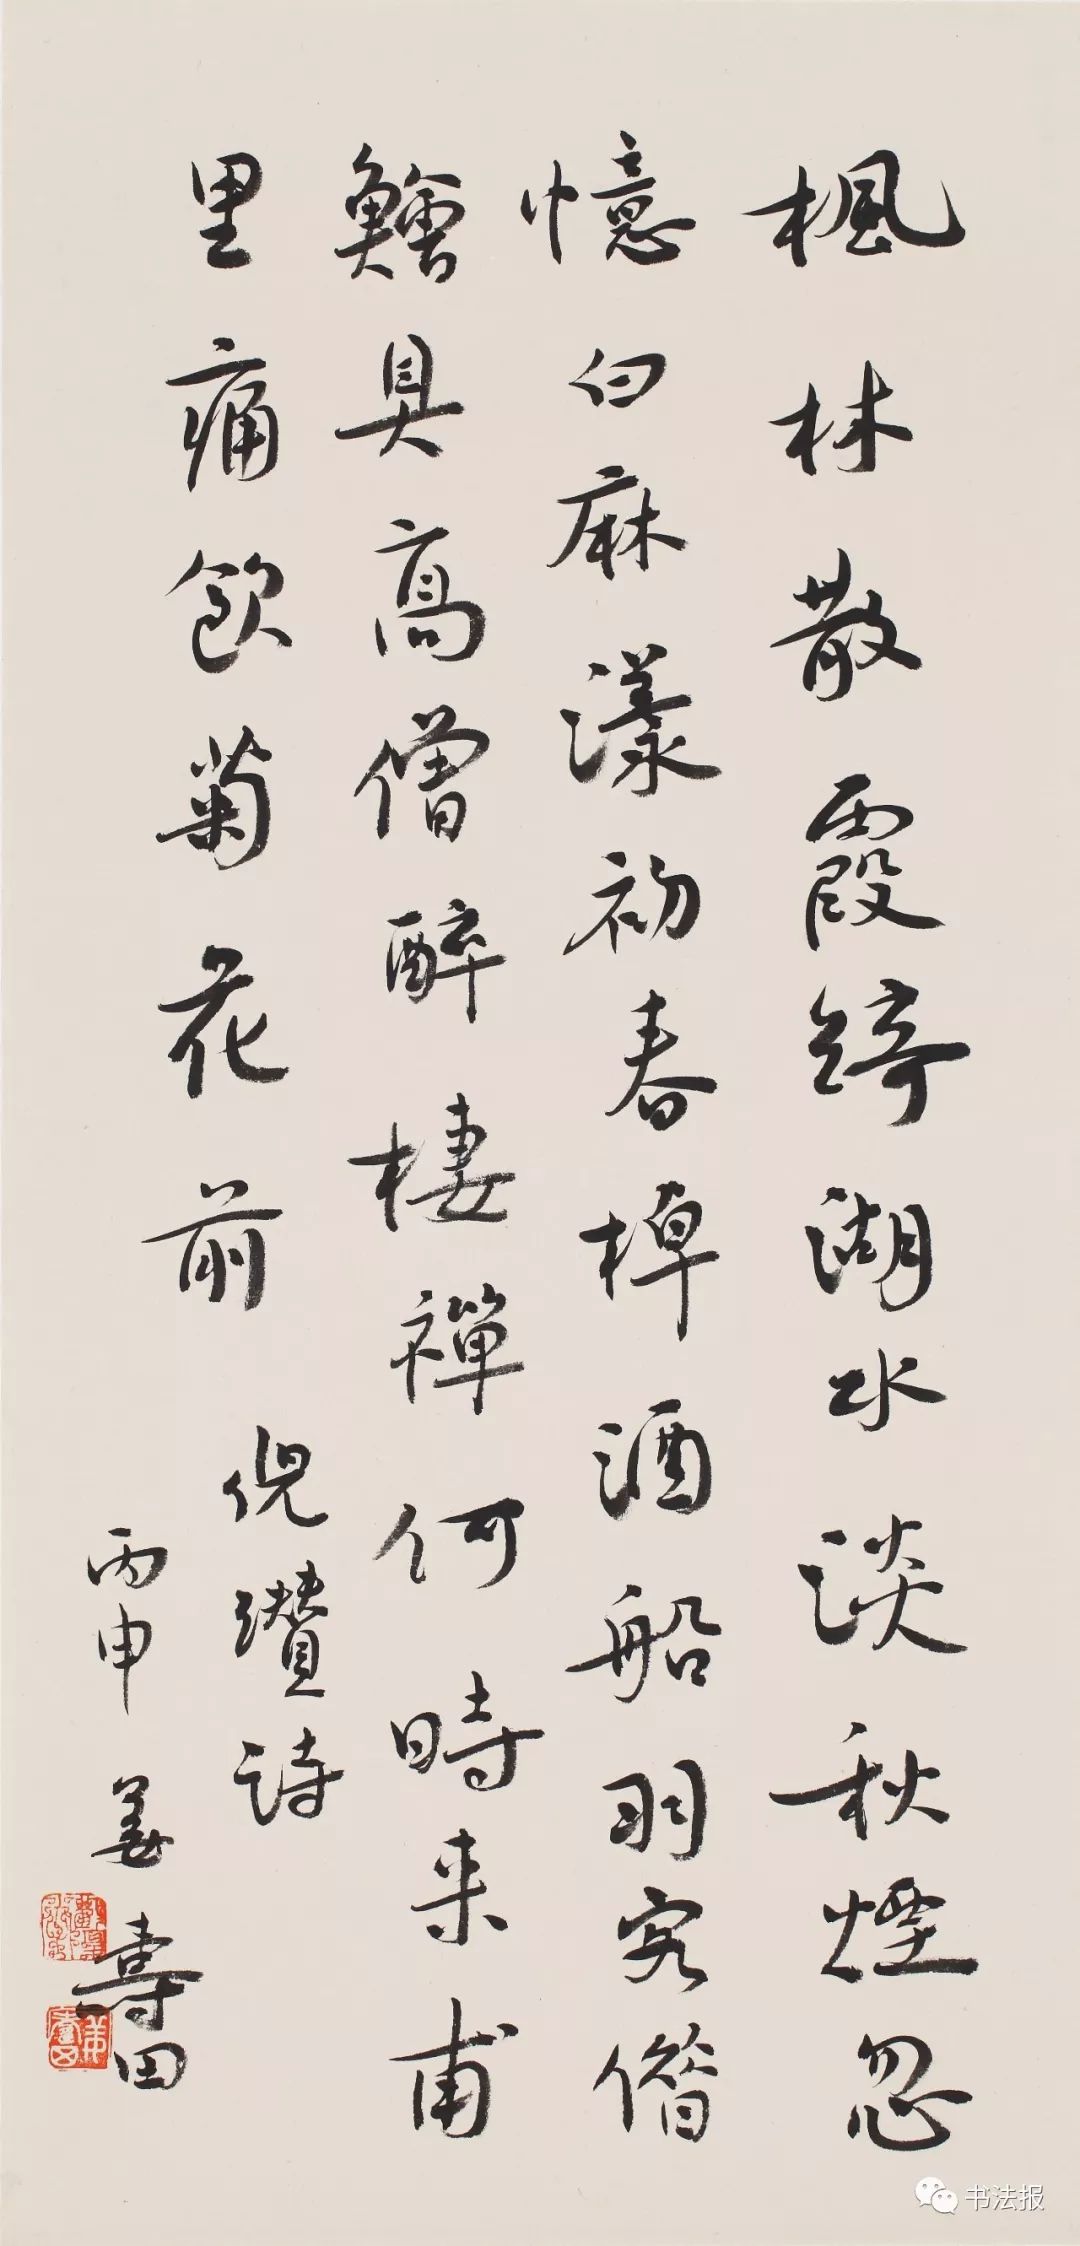 楓林散霞綺湖水淡秋煙忽
憶白麻漾初春棹酒船羽客偕
鱠具高僧醉棲禪何時来甫
里痛飲菊花前
倪瓚詩
丙申姜壽田
书法报